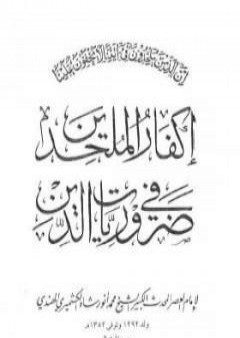 إن الذين يلحدون في آياتنا لا يخفون علينا
إكفار الملحدين
في ضروريات الدين
لإمام العصر المحدث الكبير الشيخ محمد أنور شاه الكشميري الهندي
ولد ١٢٩٢ وتوفي ١٣٥٢هـ